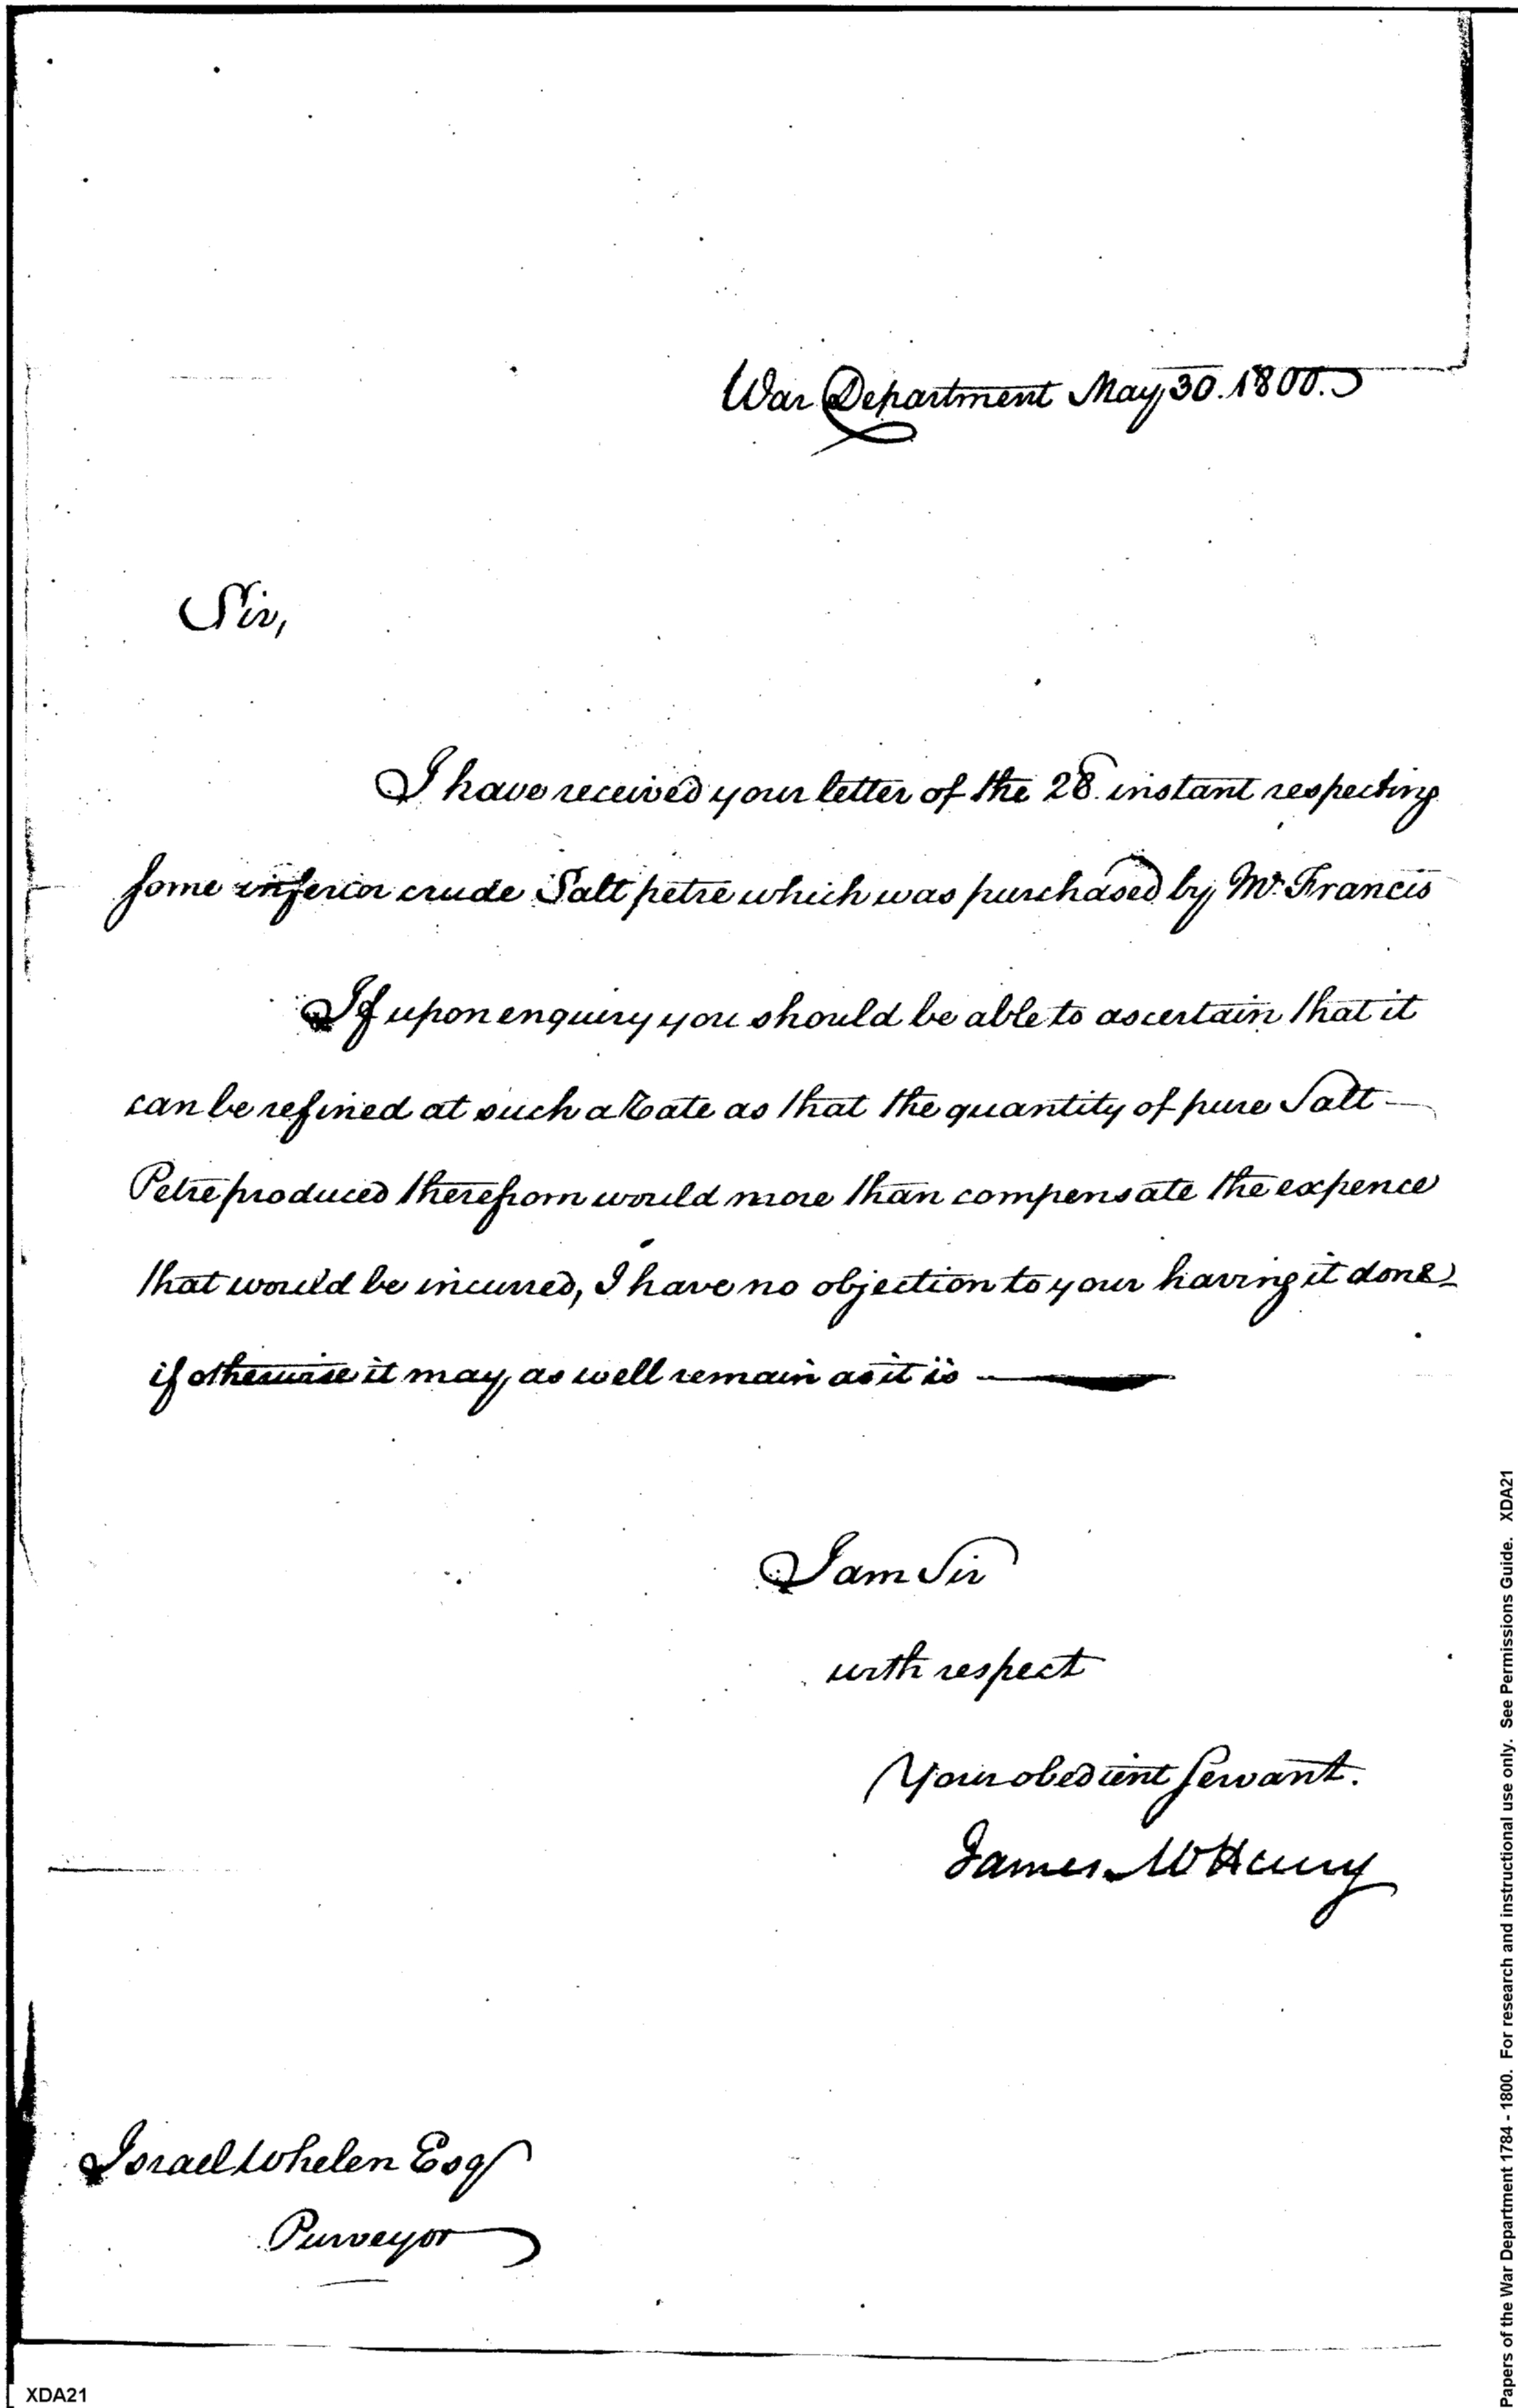 War Department May 30. 1800.
Sir,
I have received your letter of the 28. instant respecting
some inferior crude Salt petre which was purchased by Mr. Francis
If upon enquiry you should be able to ascertain that it
can be refined at such a rate as that the quantity of pure Salt-
Petre produced therefrom would more than compensate the expence
that would be incurred, I have no objection to your having it done
if otherwise it may as well remain as it is
I am Sir
with respect
Your obedient Servant.
James McHenry
Israel Whelen Esqr
Purveyor
XDA21
Papers of the War Department 1784 - 1800. For research and instructional use only. See Permissions Guide. XDA21